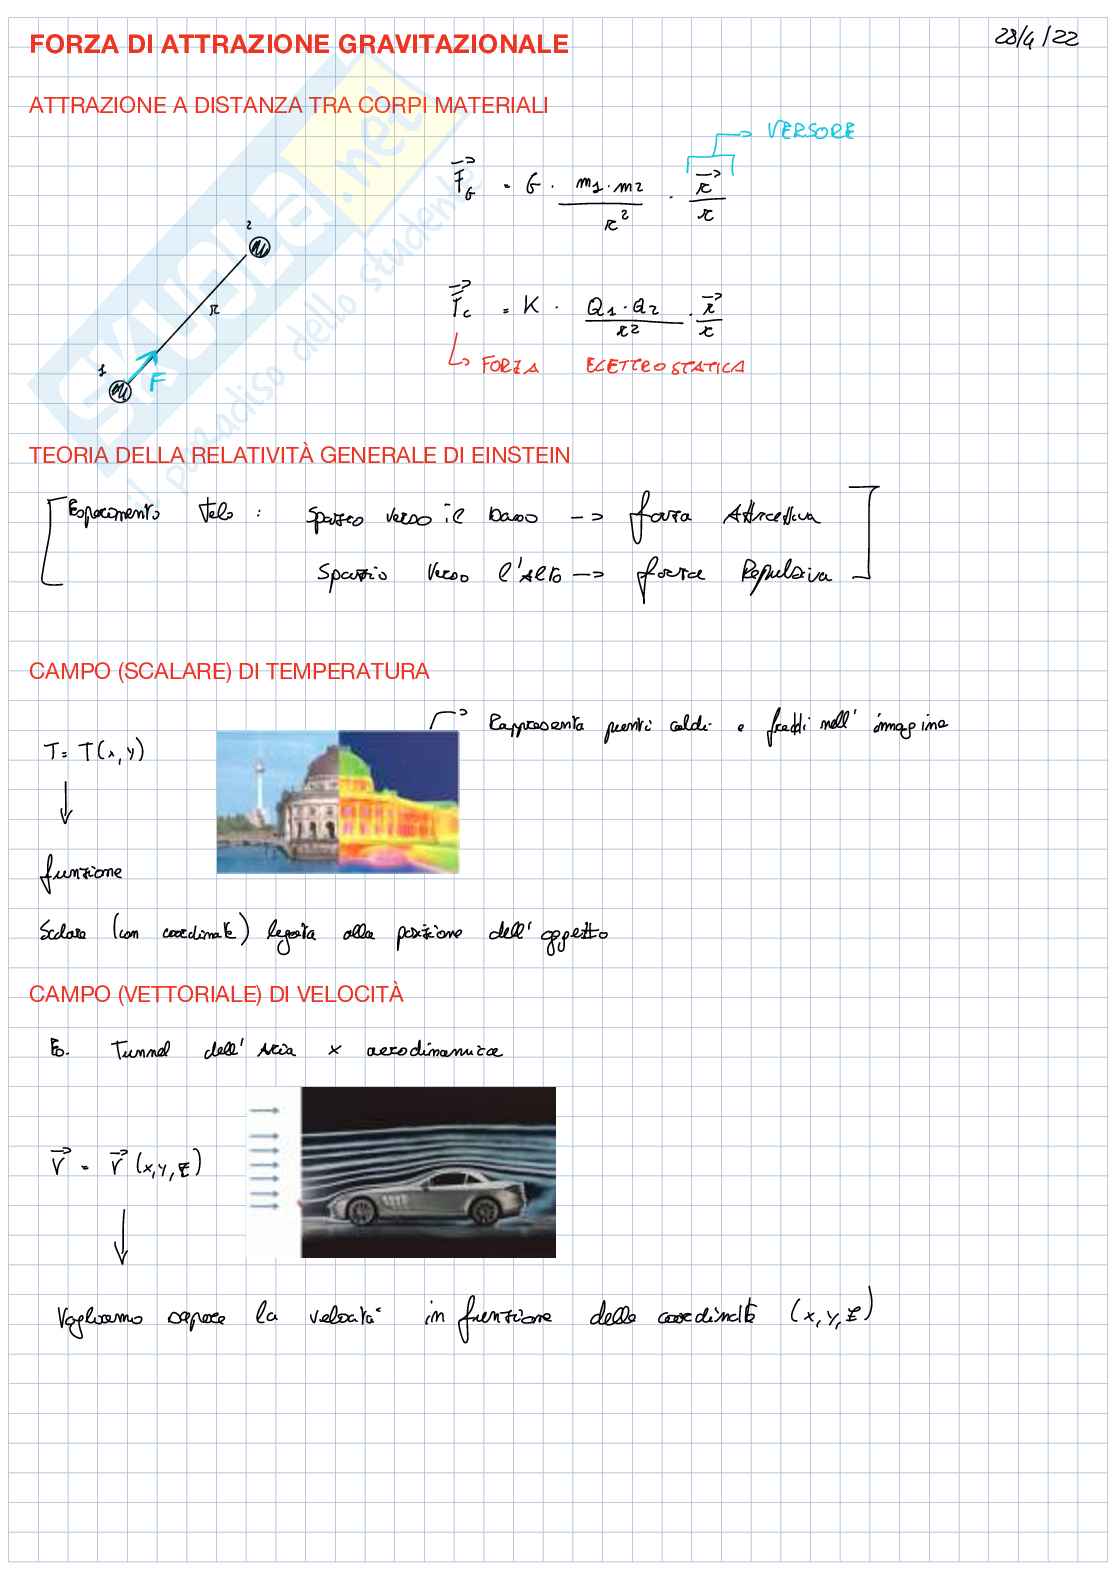 FORZA DI ATTRAZIONE GRAVITAZIONALE
28/4/22
ATTRAZIONE A DISTANZA TRA CORPI MATERIALI
VERSORE
F⃗_G = G · m1·m2 / r² · r⃗/r
2
r
1
F
F⃗_c = K · Q1·Q2 / r² · r⃗/r
FORZA ELETTROSTATICA
SKUOLA.net
il paradiso dello studente
TEORIA DELLA RELATIVITÀ GENERALE DI EINSTEIN
[Esperimento Telo : Spazio verso il basso --> forza Attrattiva
Spazio verso l'Alto --> forza Repulsiva]
CAMPO (SCALARE) DI TEMPERATURA
Rappresenta punti caldi e freddi nell' immagine
T = T(x, y)
funzione
Scalare (con coordinate) legata alla posizione dell' oggetto
CAMPO (VETTORIALE) DI VELOCITÀ
Es. Tunnel dell' Aria x aerodinamica
V⃗ = V⃗ (x, y, z)
Vogliamo sapere la velocità in funzione delle coordinate (x, y, z)